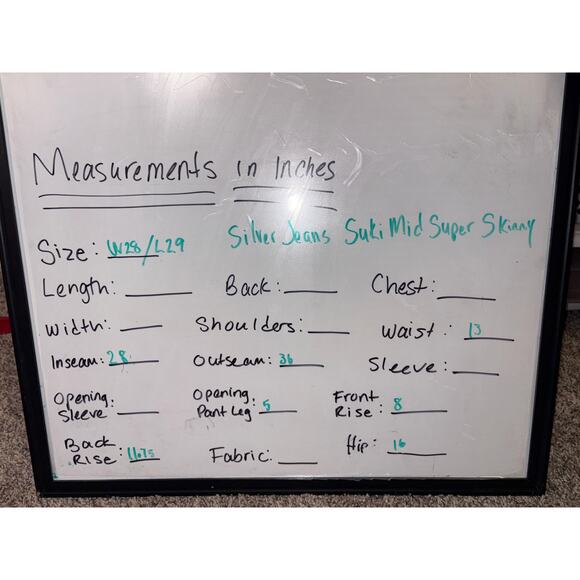 Measurements in Inches
Silver Jeans Suki Mid Super Skinny
Size: W28/L29
Length: Back: Chest:
Width: Shoulders: Waist: 13
Inseam: 28 Outseam: 36 Sleeve:
Opening Sleeve: Opening Pant Leg: 5 Front Rise: 8
Back Rise: 11.75 Fabric: Hip: 16